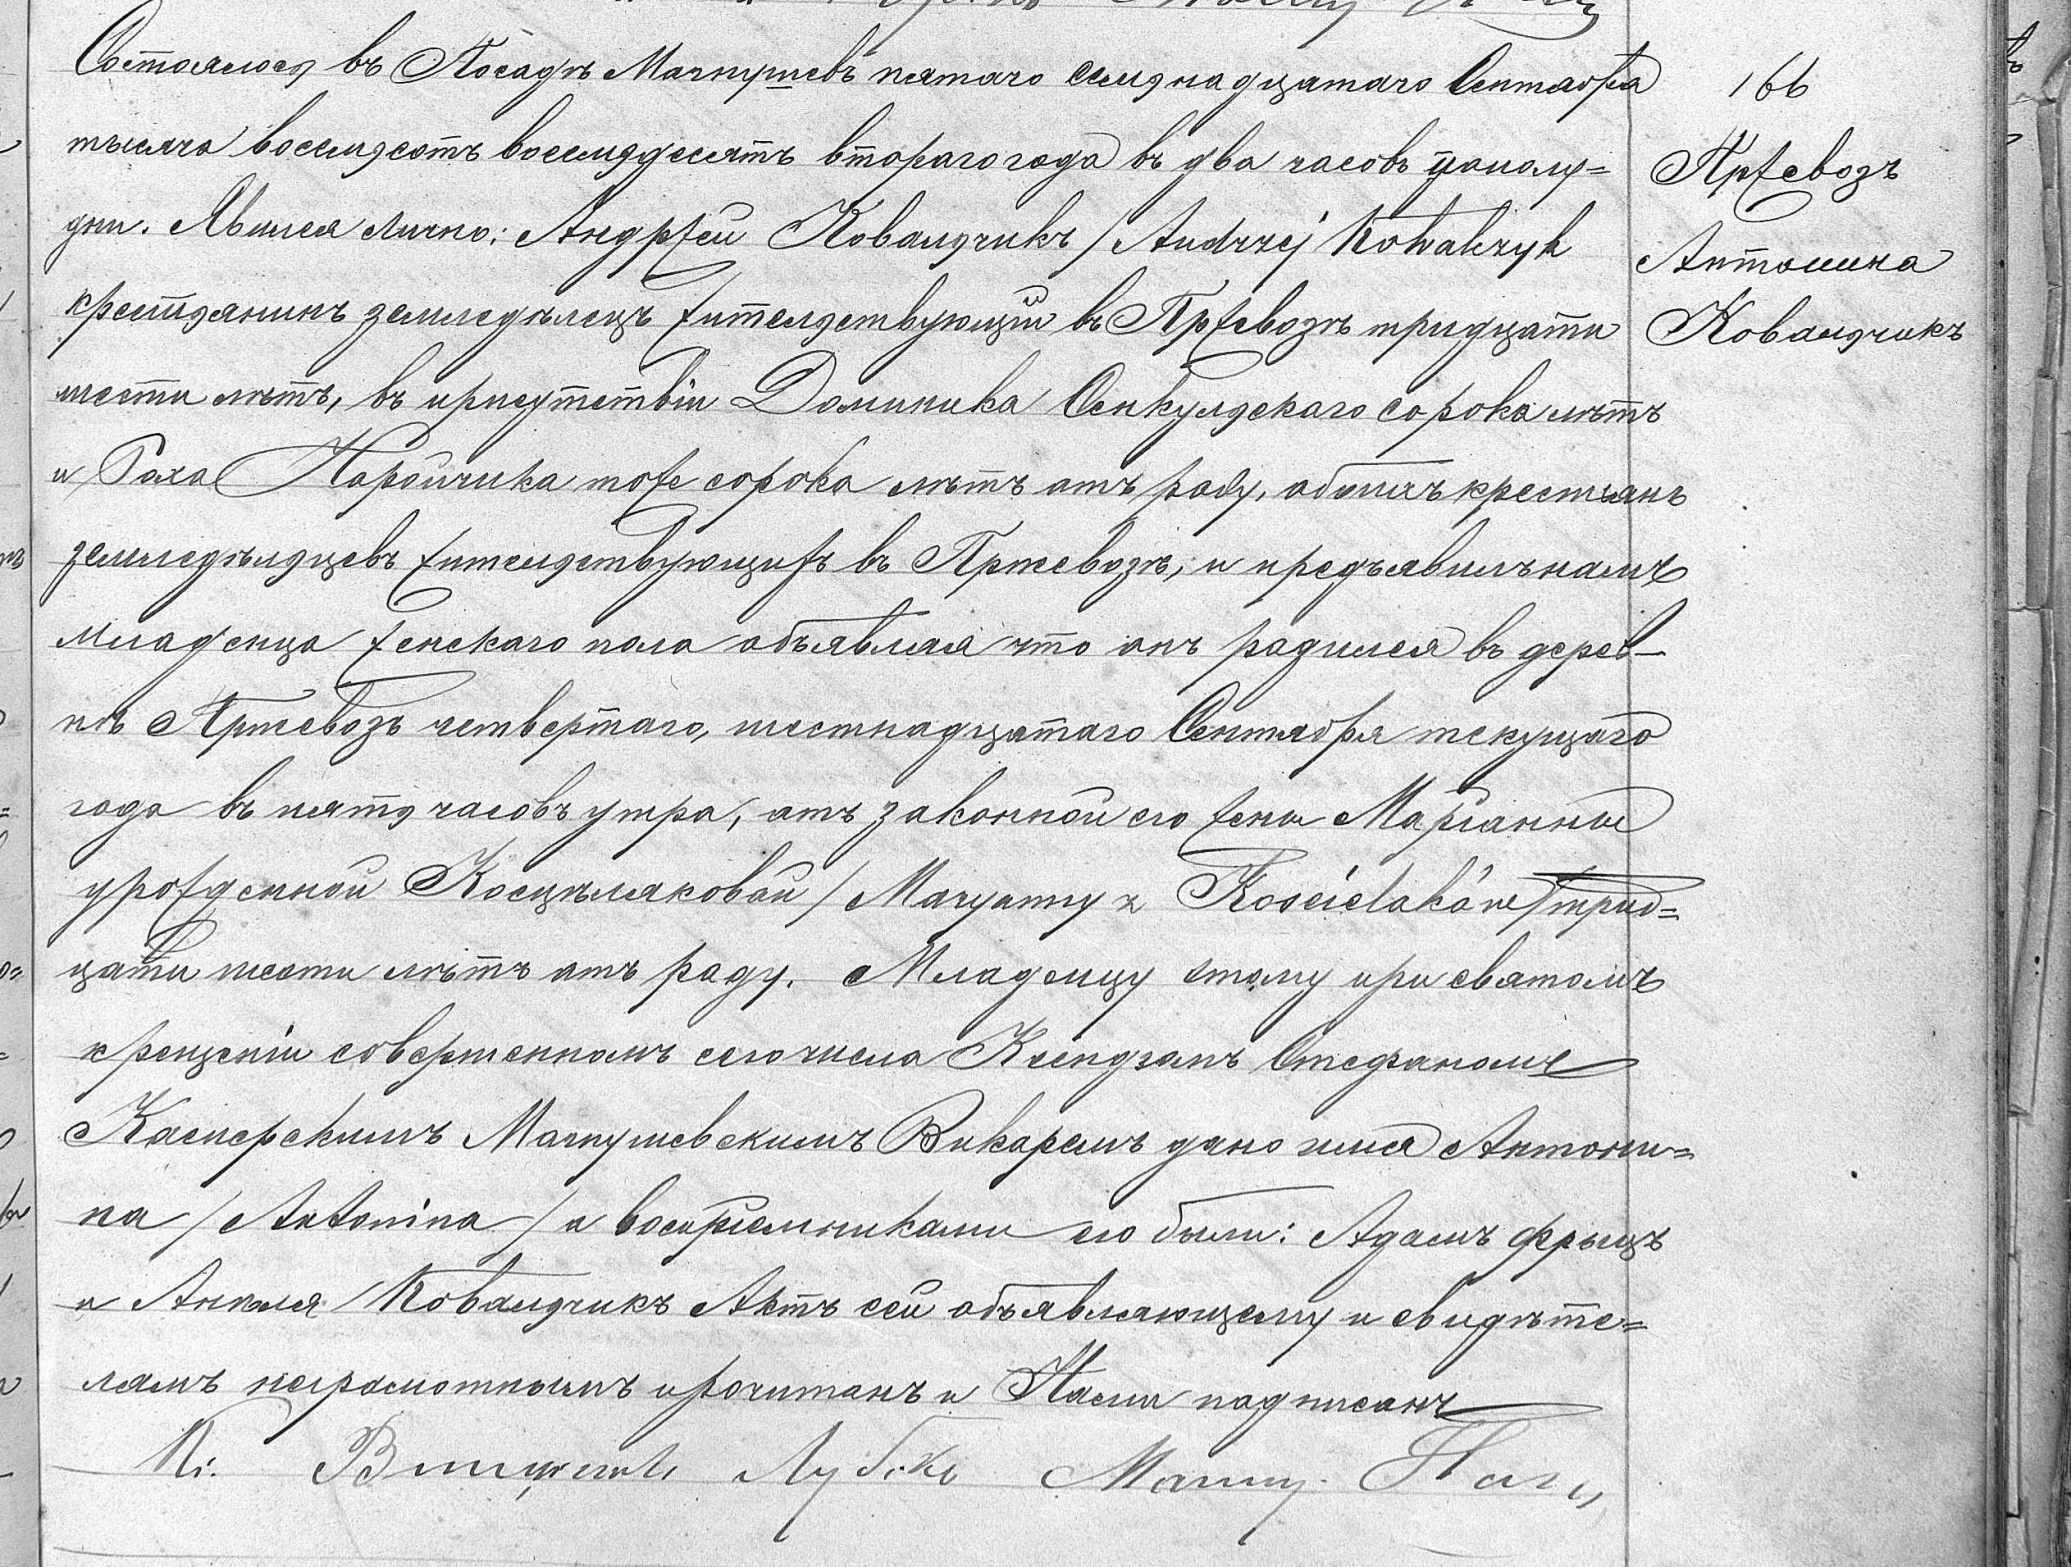 Состоялось въ Посадѣ Магнушевъ пятаго семнадцатаго Сентября
тысяча восемьсотъ восемьдесятъ втораго года въ два часовъ пополу=
дни. Явился лично: Андржей Ковальчикъ /Andrzej Kowalczyk
крестьянинъ земледѣлецъ жительствующій въ Пржевозѣ тридцати
шести лѣтъ, въ присутствіи Доминика Сенкульскаго сорока лѣтъ
и Роха тоже сорока лѣтъ отъ роду, обоихъ крестьянъ
земледѣльцевъ жительствующихъ въ Пржевозѣ, и предъявилъ намъ
младенца женскаго пола объявляя что онъ родился въ дерев-
нѣ Пржевозъ четвертаго, шестнадцатаго Сентября текущаго
года въ пять часовъ утра, отъ законной его жены Маріанны
урожденной Косцѣляковой /Maryanny z Kościelaków/ трид=
цати шести лѣтъ отъ роду. Младенцу этому при святомъ
крещеніи совершенномъ сего числа Ксендзомъ Стефаномъ
Касперскимъ Магнушевскимъ Викаремъ дано имя Антони=
на /Antonina/ а воспріемниками его были: Адамъ Фрыцъ
и Анеля Ковальчикъ Актъ сей объявляющему и свидѣте=
лямъ неграмотнымъ прочитанъ и Нами подписанъ
Кс.
166
Пржевозъ
Антонина
Ковальчикъ